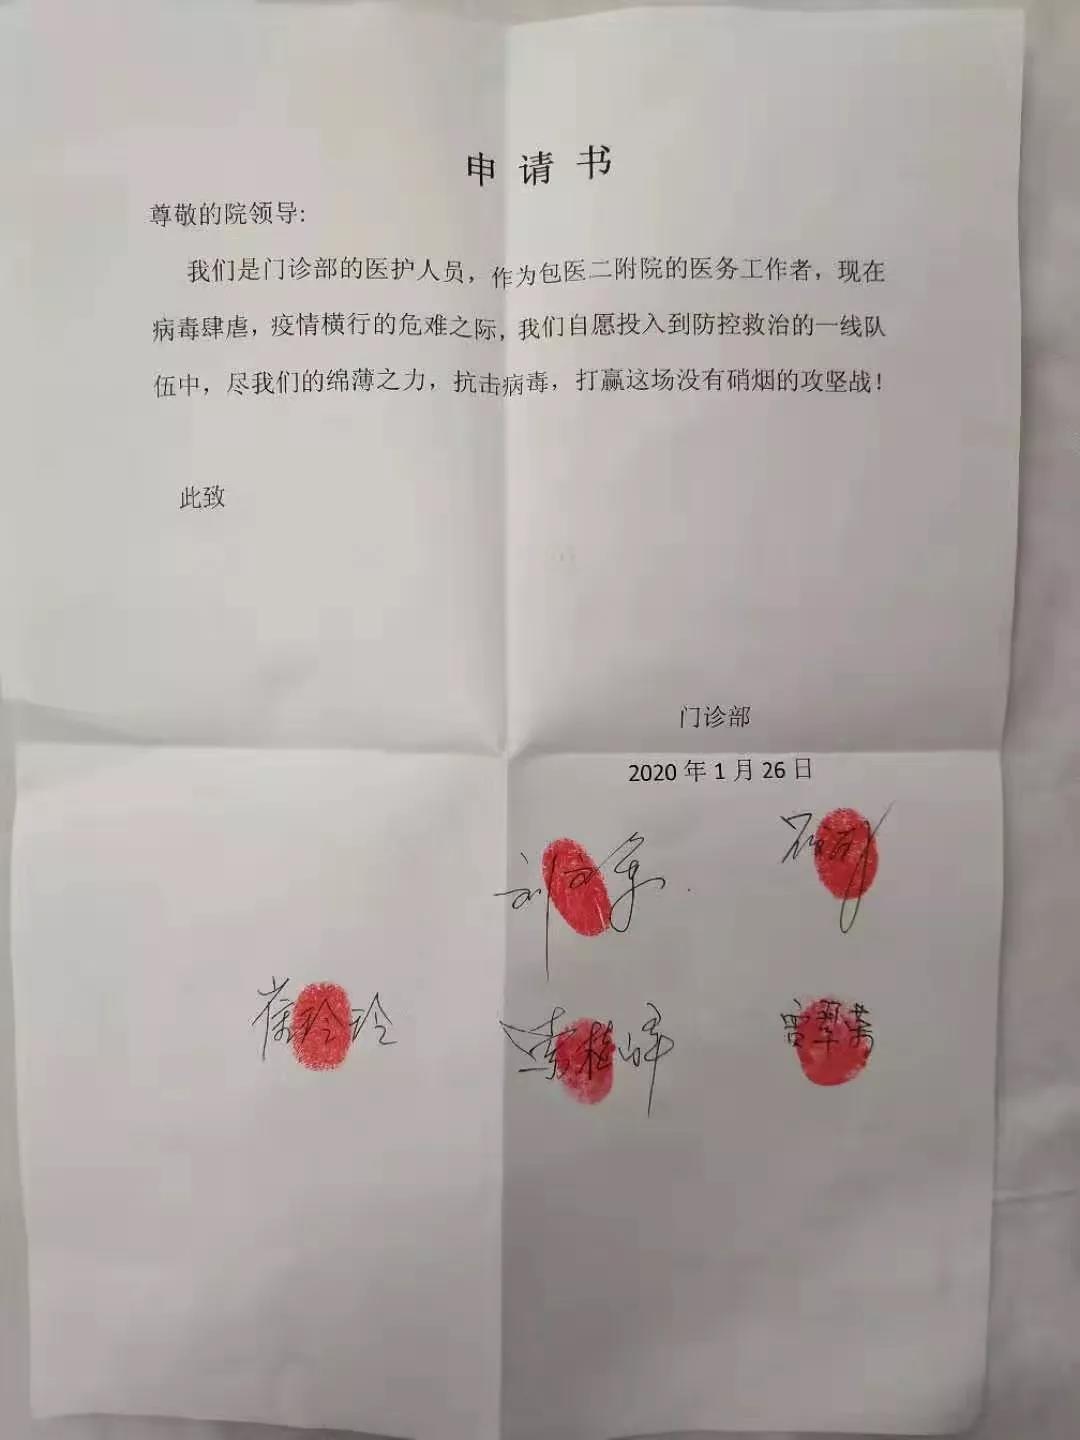 申请书
尊敬的院领导:
我们是门诊部的医护人员，作为包医二附院的医务工作者，现在
病毒肆虐，疫情横行的危难之际，我们自愿投入到防控救治的一线队
伍中，尽我们的绵薄之力，抗击病毒，打赢这场没有硝烟的攻坚战！
此致
门诊部
2020年1月26日
刘
玲玲